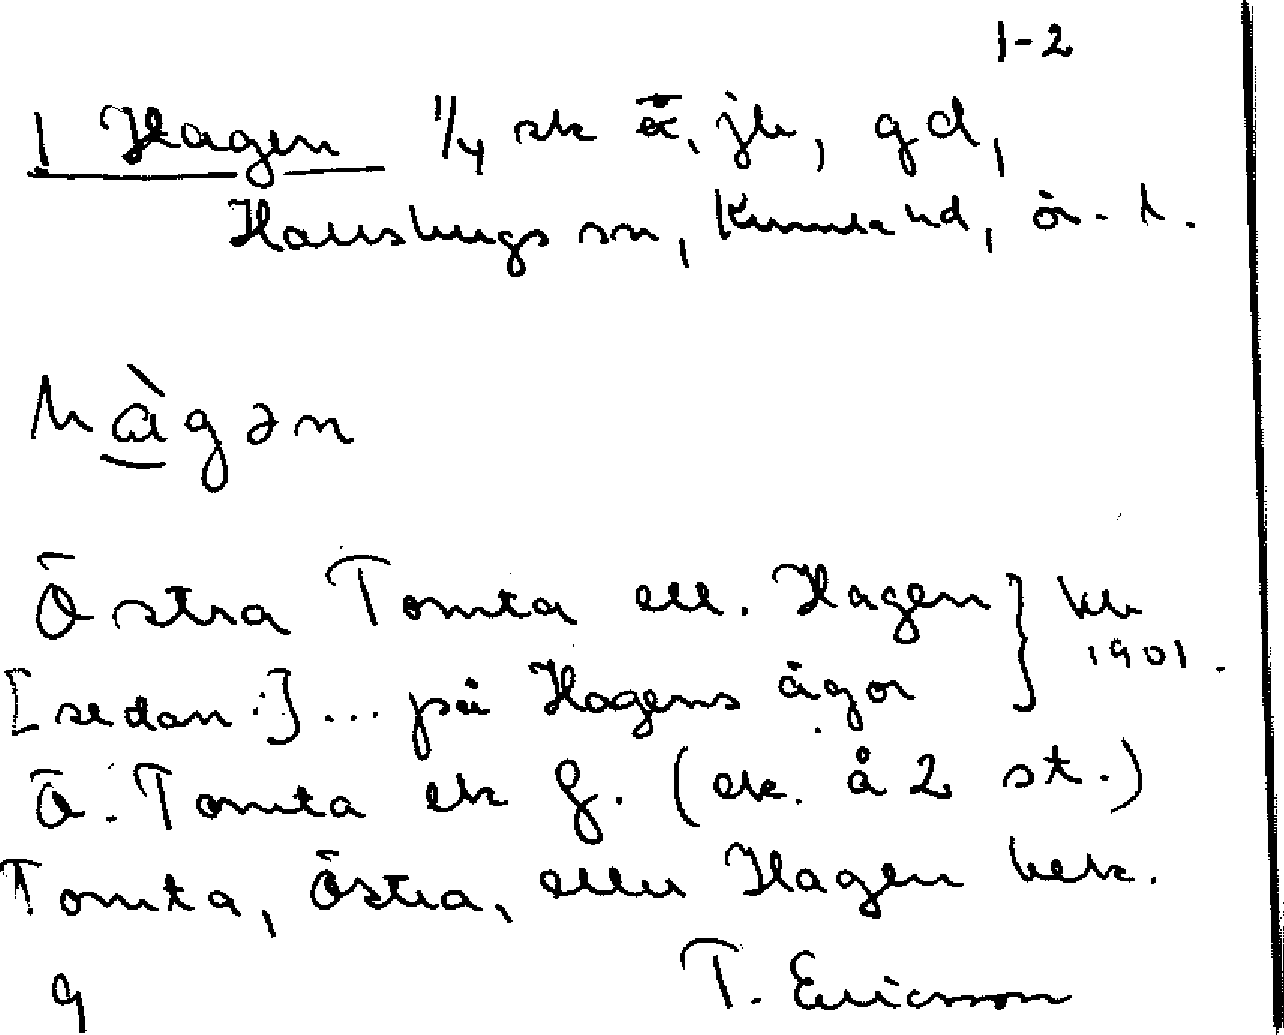 1-2
1 Hagen 1/4 sk ö, jb, gd,
Hallsbergs sn, Kumla hd, ör. l.
hàgən
Östra Tomta ell. Hagen } kb
1901.
[sedan:] ... på Hagens ägor
Ö. Tomta ek g. (ek. å 2 st.)
Tomta, Östra, eller Hagen bek.
9 T. Ericsson